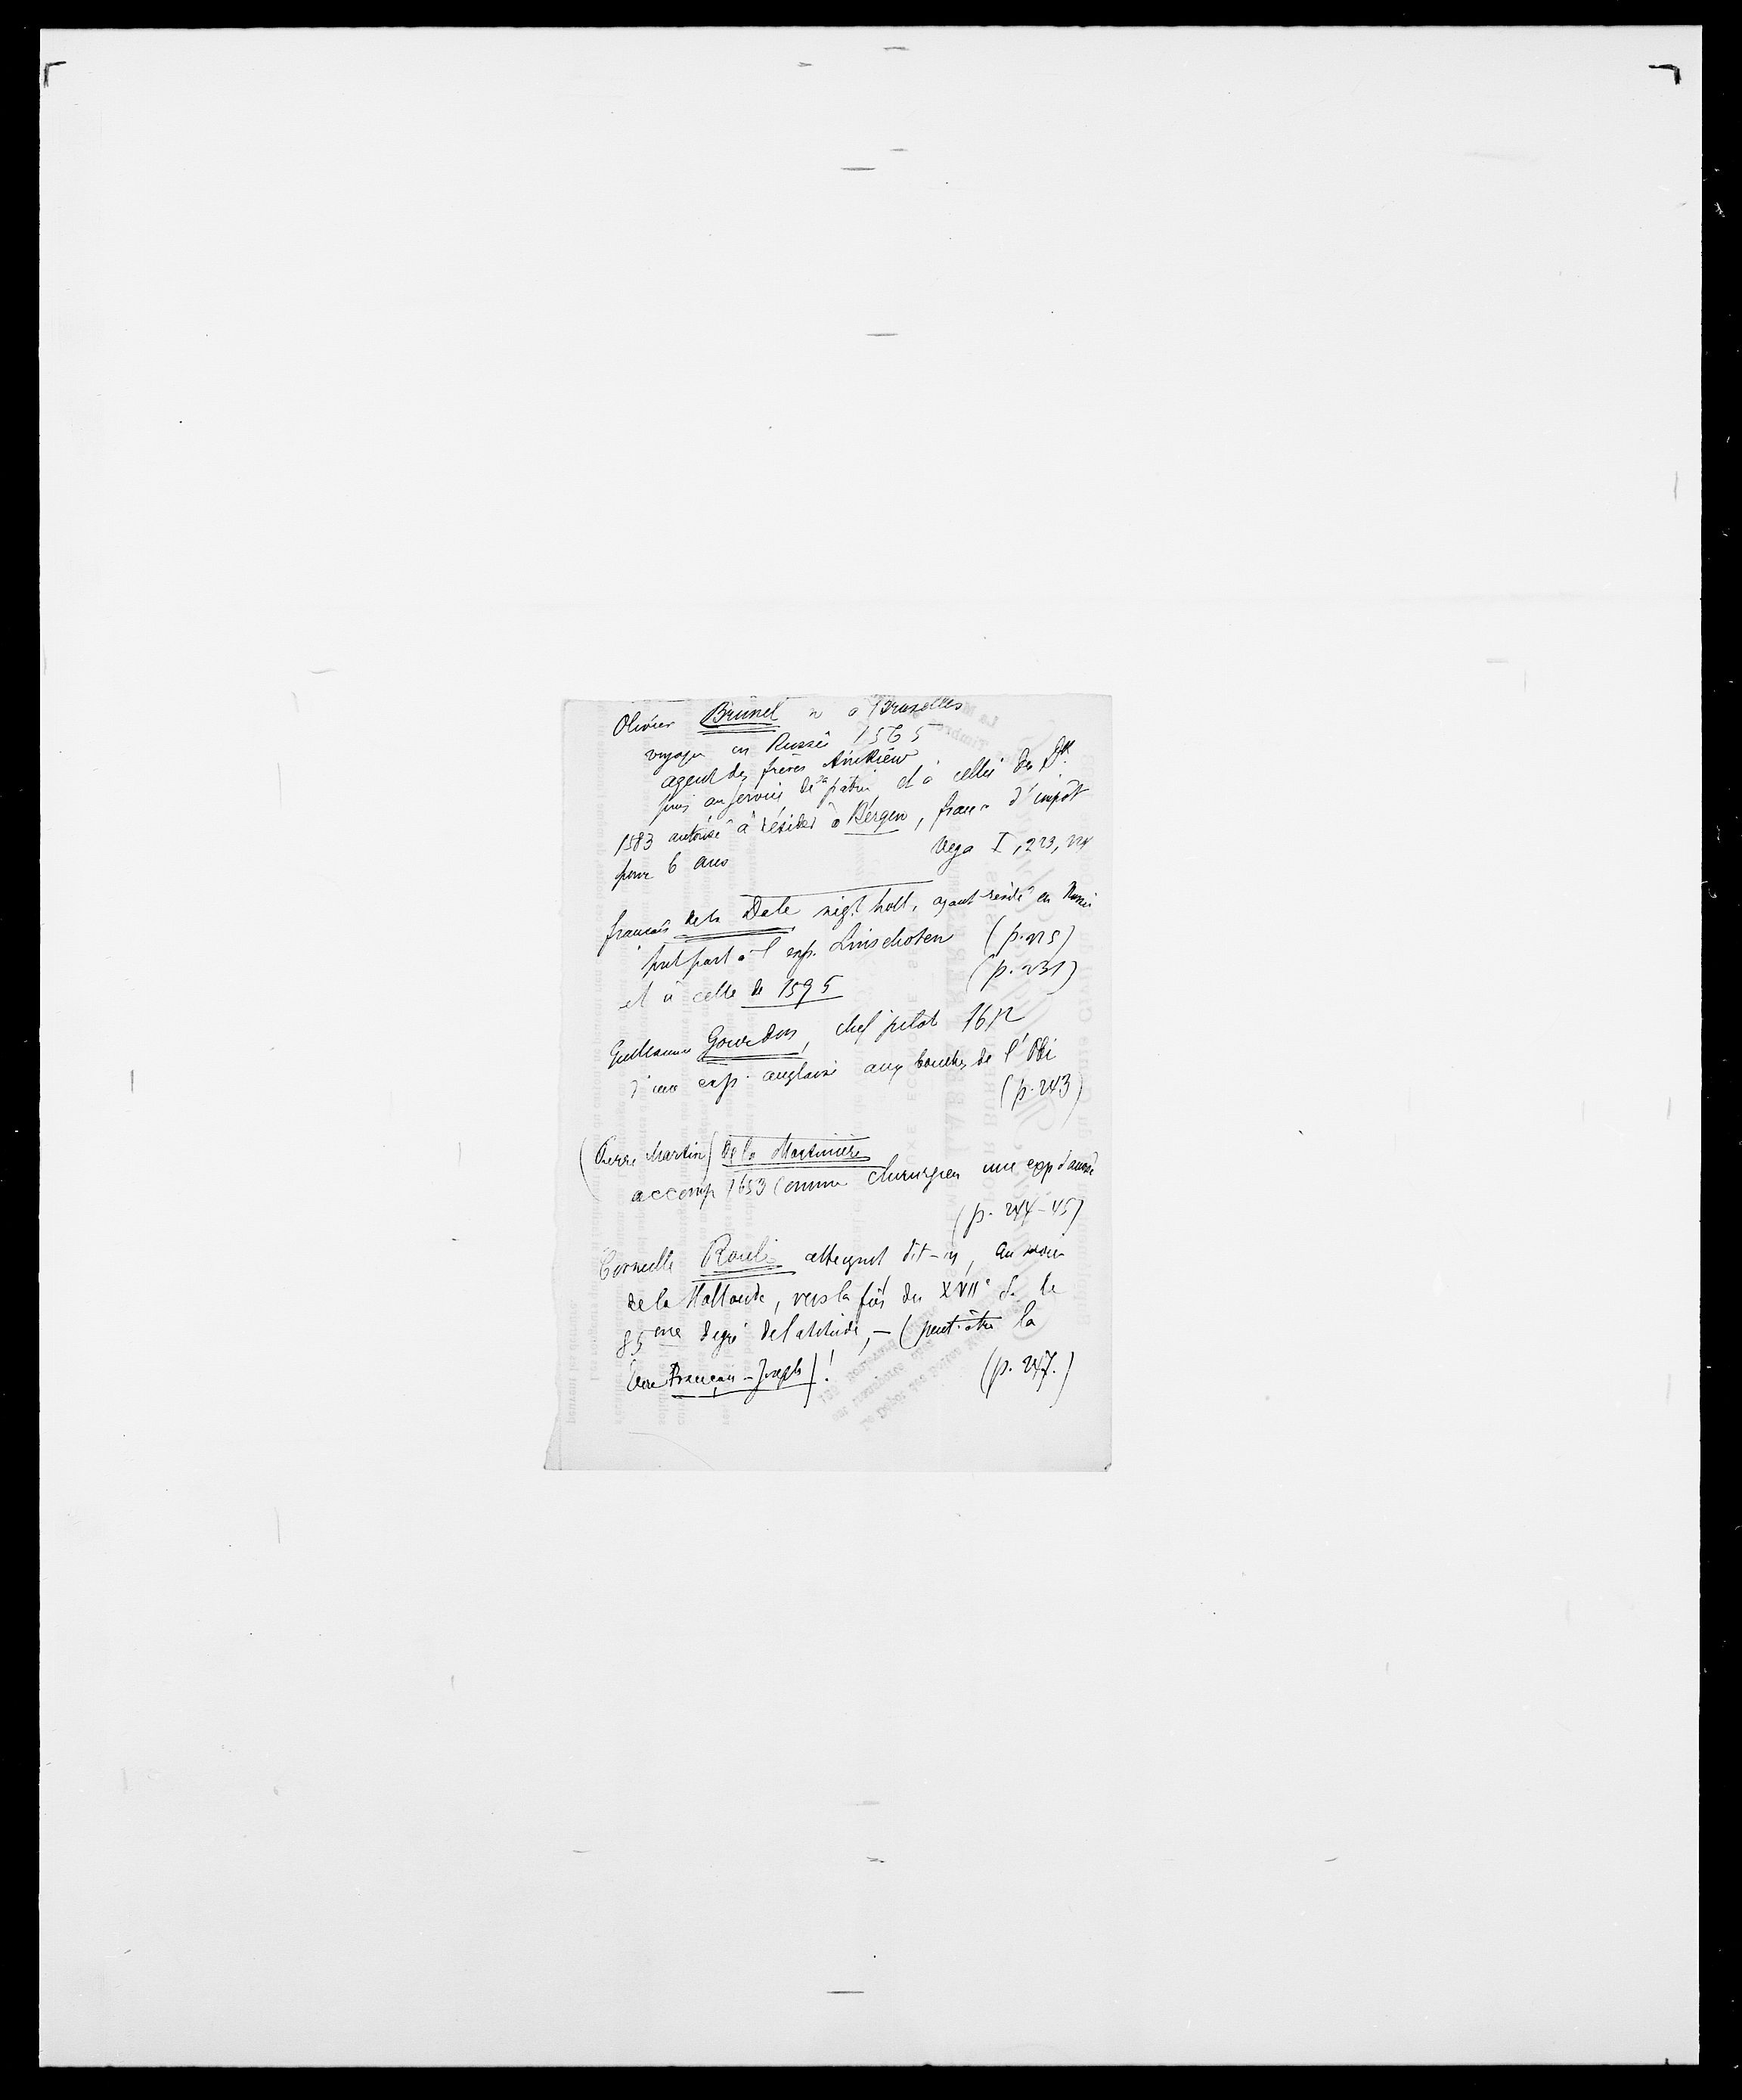 Olivier Brunel n à Bruxelles
voyage en Russie 1565
agent des frères Anikiew
puis au service de sa patrie et à celles des
1583 autorisé à résider à Bergen, franc d'impôt
pour 6 ans Vega I, 223, 224
français de la Dale négt holl, ayant résidé en Russie
prit part à l'exp. Linschoten (p. 225)
et à celle de 1595 (p. 231)
Guillaume Gourdon, chef pilote 1612
d'une exp. anglaise aux bouches de l'Obi
(p. 243)
(Pierre Martin) de la Martinière
accomp 1653 comme chirurgien une exp danoise
(p. 244-45)
Corneille Roule atteignit dit-on, au nord
de la Hollande, vers la fin du XVIIe S. le
85eme degré de latitude, - (peut-être la
Terre François-Joseph)! (p. 247.)